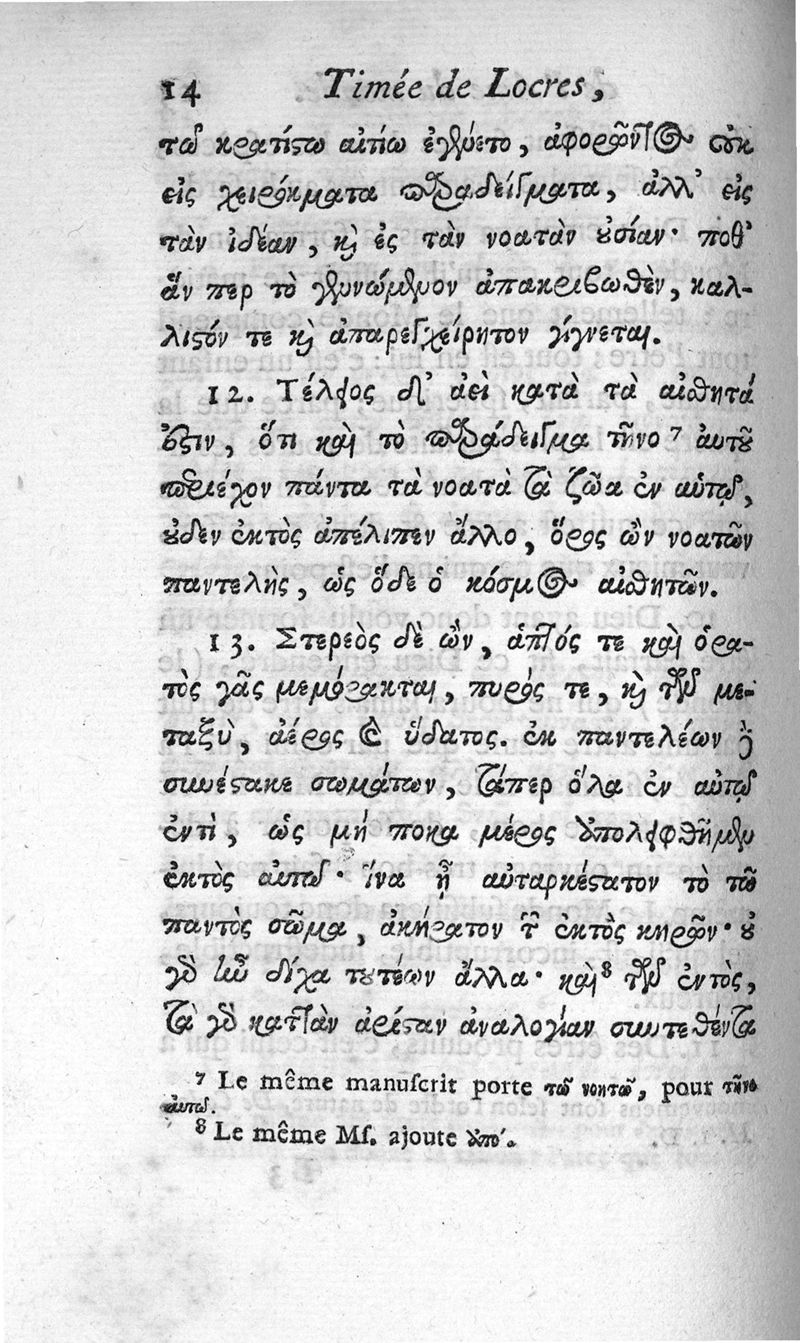 14 Timée de Locres,
τῶ κρατίστω αἰτίω ἐγένετο, ἀφορῶντος οὐκ
εἰς χειρόκματα παραδείγματα, ἀλλ' εἰς
τὰν ἰδέαν, καὶ ἐς τὰν νοατὰν οὐσίαν· ποθ'
ἅν περ τὸ γενώμενον ἀπακριβωθὲν, καλ-
λιστόν τε καὶ ἀπαρεγχείρητον γίγνεται.
12. Τέλειος δ' ἀεὶ κατὰ τὰ αἰσθητά
ἐστιν, ὅτι καὶ τὸ παράδειγμα τῆνο 7 αὐτοῦ
περιέχον πάντα τὰ νοατὰ ζῶα ἐν αὑτῷ,
οὐδεν ἐκτὸς ἀπέλιπεν ἄλλο, ὅρος ὢν νοατῶν
παντελὴς, ὡς ὅδε ὁ κόσμος αἰσθητῶν.
13. Στερεὸς δὲ ὢν, ἁπτός τε καὶ ὁρα-
τὸς γᾶς μεμόρακται, πυρός τε, καὶ τῶν με-
ταξὺ, ἀέρος καὶ ὕδατος. ἐκ παντελέων δὲ
συνέστακε σωμάτων, τάπερ ὅλα ἐν αὐτῷ
ἐντὶ, ὡς μή ποκα μέρος ὑπολειφθῆμεν
ἐκτὸς αὐτῶ· ἵνα ᾖ αὐταρκέστατον τὸ τῶ
παντὸς σῶμα, ἀκήρατον τῶν ἐκτὸς κηρῶν· οὐ
γὰρ ἦν δίχα τουτέων ἄλλα· καὶ 8 τῶν ἐντὸς,
τὰ γὰρ κατὰν ἀρίσταν ἀναλογίαν συντεθέντα
7 Le même manuscrit porte τῶ νοητῶ, pour τῆνο
αὐτῶ.
8 Le même Ms. ajoute ὑπό.